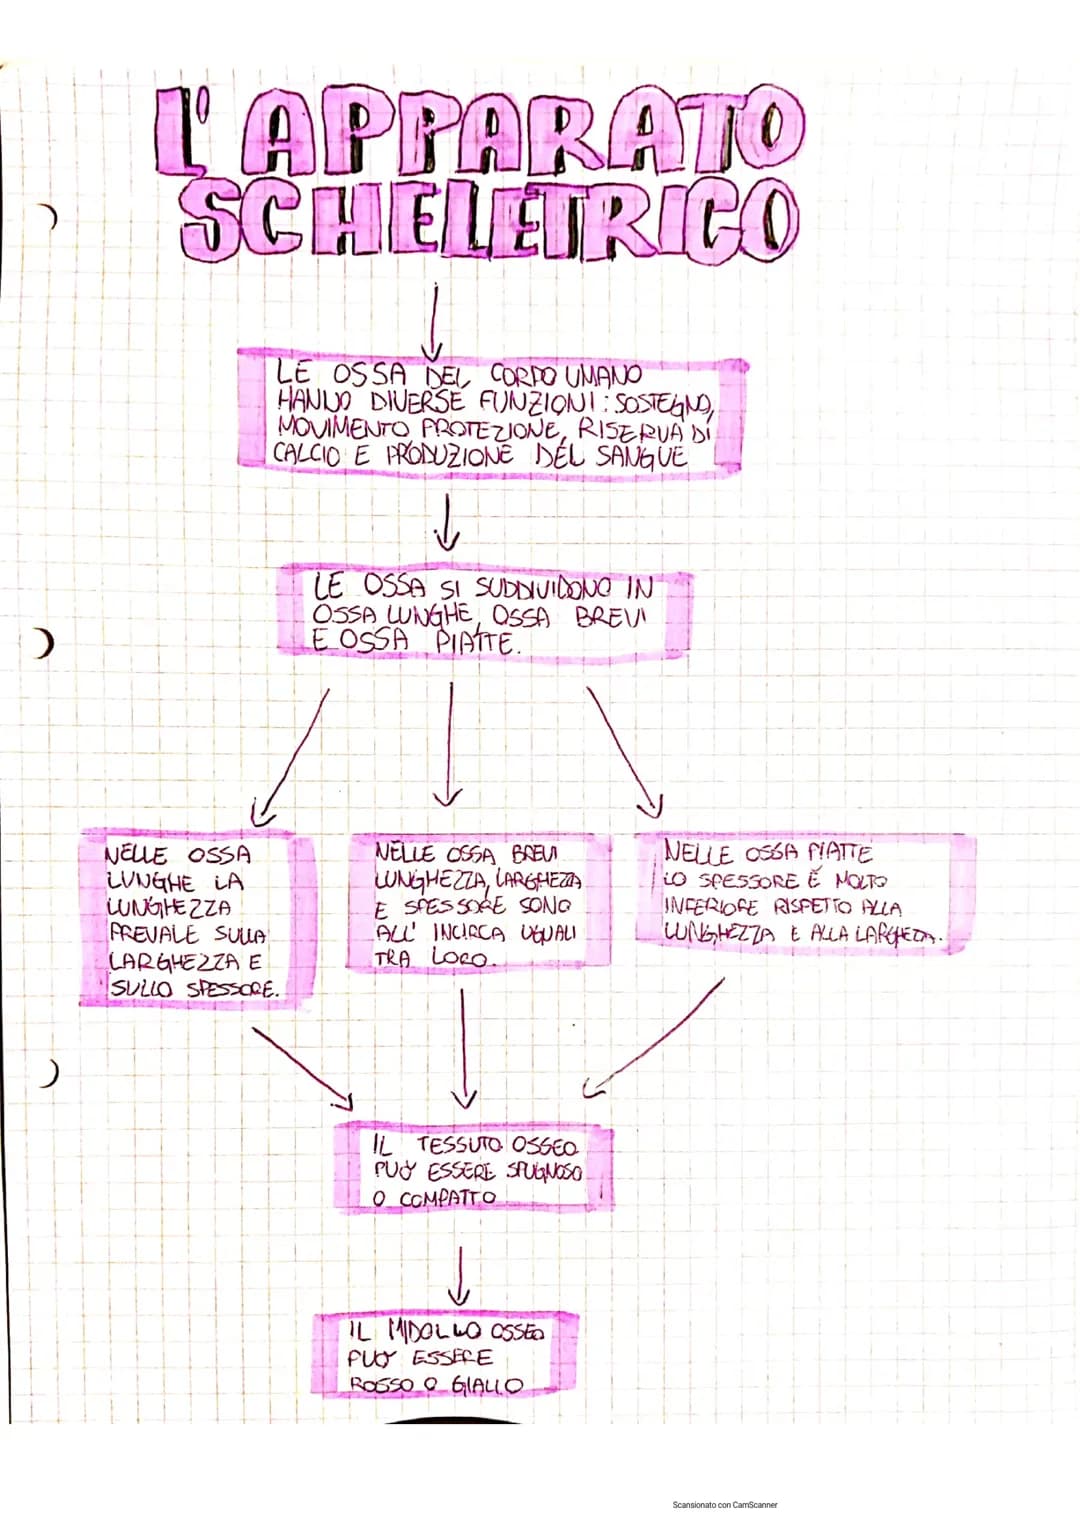 L'APPARATO
SCHELETRICO
LE OSSA DEL CORPO UMANO
HANNO DIVERSE FUNZIONI: SOSTEGNO,
MOVIMENTO PROTEZIONE, RISERVA DI
CALCIO E PRODUZIONE DEL SANGUE
LE OSSA SI SUDDIVIDONO IN
OSSA LUNGHE, OSSA BREVI
E OSSA PIATTE.
NELLE OSSA
LUNGHE LA
LUNGHEZZA
PREVALE SULLA
LARGHEZZA E
SULLO SPESSORE.
NELLE OSSA BREVI
LUNGHEZZA, LARGHEZZA
E SPESSORE SONO
ALL' INCIRCA UGUALI
TRA LORO.
NELLE OSSA PIATTE
LO SPESSORE È MOLTO
INFERIORE RISPETTO ALLA
LUNGHEZZA E ALLA LARGHEZZA.
IL TESSUTO OSSEO
PUÒ ESSERE SPUGNOSO
O COMPATTO
IL MIDOLLO OSSEO
PUÒ ESSERE
ROSSO O GIALLO
Scansionato con CamScanner